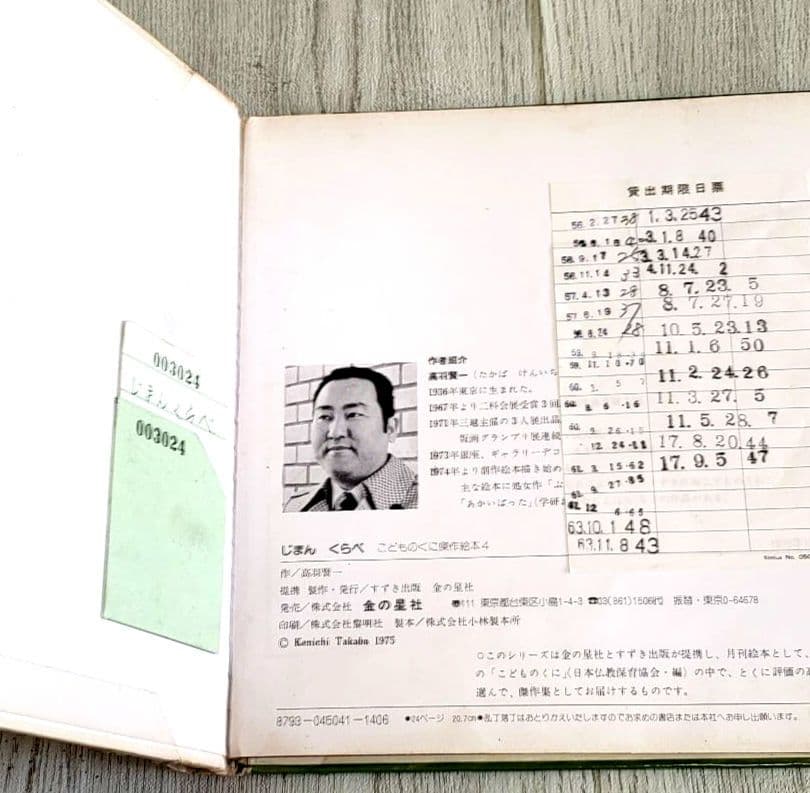 003024
じまんくらべ
003024
作者紹介
高羽賢一(たかば けんいち
1936年東京に生まれた。
1967年より二科会展受賞3回
1971年三越主催の3人展出品
版画グランプリ展連続
1973年銀座、ギャラリーデコ
1974年より創作絵本描き始め
主な絵本に処女作「ぶ
「あかいばった」(学研
じまん くらべ こどものくに傑作絵本4
作/高羽賢一
提携 製作・発行/すずき出版 金の星社
発売/株式会社 金の星社 〠111 東京都台東区小島1-4-3 ☎03(861)1506代 振替・東京0-64678
印刷/株式会社黎明社 製本/株式会社小林製本所
© Kenichi Takaba 1975
○このシリーズは金の星社とすずき出版が提携し、月刊絵本として、
の「こどものくに」(日本仏教保育協会・編)の中で、とくに評価の高
選んで、傑作集としてお届けするものです。
8793-045041-1406 ●24ページ 20.7cm ●乱丁落丁はおとりかえいたしますのでお求めの書店または本社へお申し出願います。
貸出期限日票
56.2.27 38 1.3.25 43
3.1.8 40
56.9.17 3.3.14 27
56.11.14 33 4.11.24. 2
57.4.13 28 8.7.23. 5
57.6.19 37 8.7.27.19
8.24 28 10.5.23.13
11.1.6 50
11.2.24.26
11.3.27. 5
11.5.28. 7
12 24 17.8.20.44
61.3 15.62 17.9.5 47
27.85
61.12
63.10.1 48
63.11.8 43